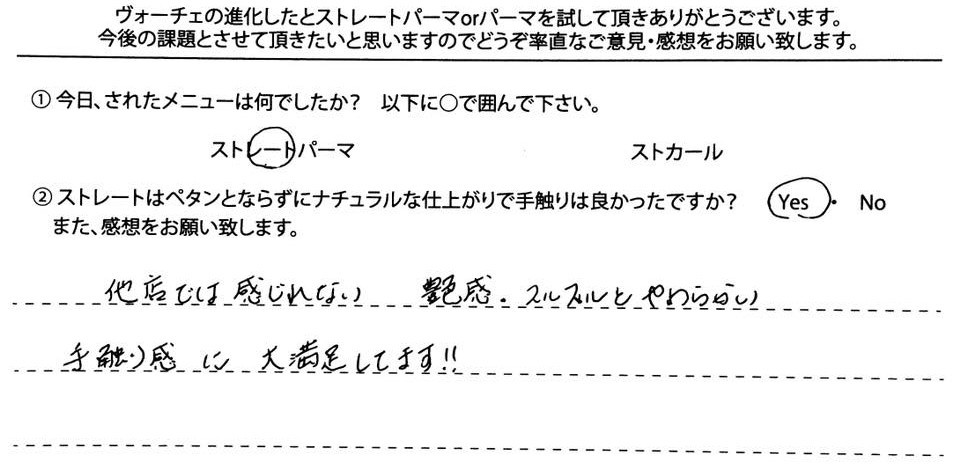 ヴォーチェの進化したとストレートパーマorパーマを試して頂きありがとうございます。
今後の課題とさせて頂きたいと思いますのでどうぞ率直なご意見・感想をお願い致します。
① 今日、されたメニューは何でしたか? 以下に○で囲んで下さい。
ストレートパーマ ストカール
② ストレートはペタンとならずにナチュラルな仕上がりで手触りは良かったですか? Yes ・ No
また、感想をお願い致します。
他店では感じれない 艶感。スルスルとやわらかい
手触り感に 大満足してます!!